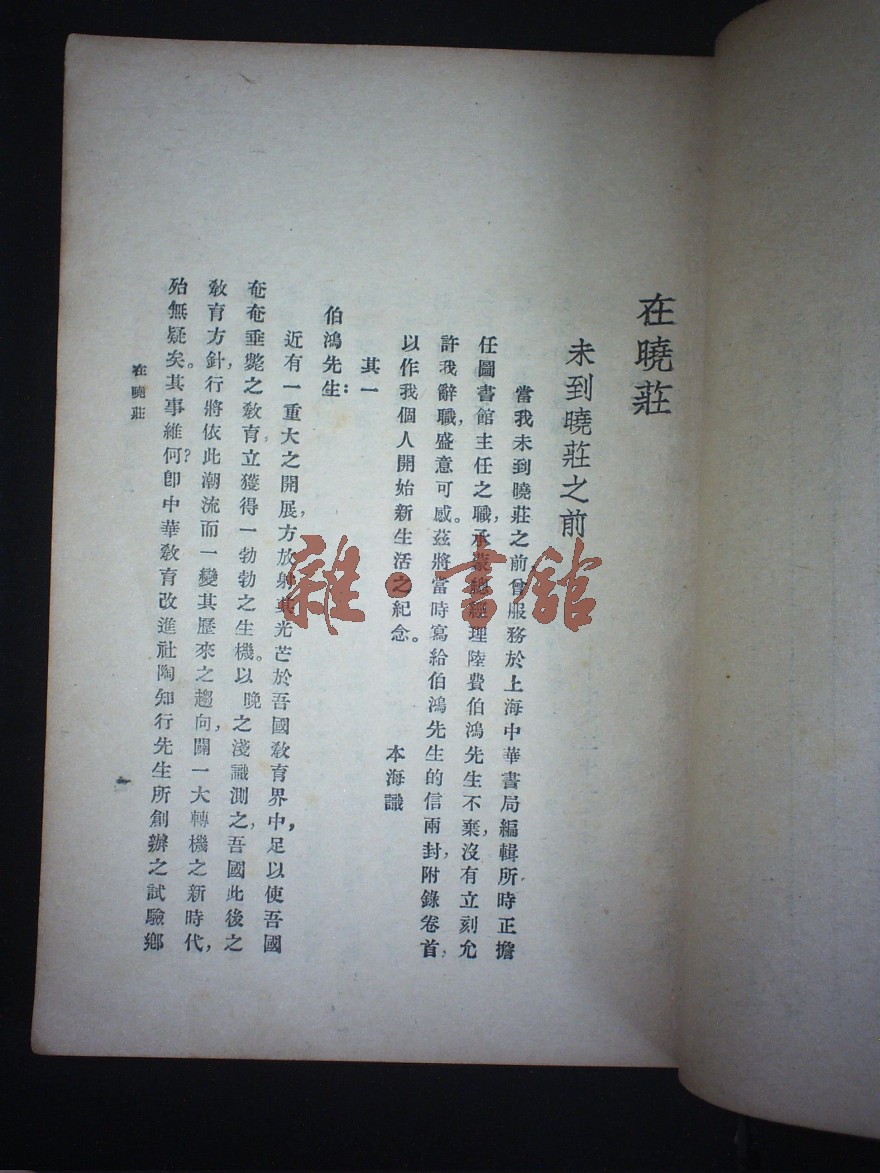 在曉莊
未到曉莊之前
當我未到曉莊之前,曾服務於上海中華書局編輯所,時正擔
任圖書館主任之職,承蒙總經理陸費伯鴻先生不棄,沒有立刻允
許我辭職,盛意可感。茲將當時寫給伯鴻先生的信兩封,附錄卷首,
以作我個人開始新生活之紀念。
本海識
其一
伯鴻先生:
近有一重大之開展,方放射其光芒於吾國敎育界中,足以使吾國
奄奄垂斃之敎育立獲得一勃勃之生機。以晚之淺識測之,吾國此後之
敎育方針,行將依此潮流而一變其歷來之趨向,闢一大轉機之新時代,
殆無疑矣。其事維何?卽中華敎育改進社陶知行先生所創辦之試驗鄉
在曉莊
一
雜·書館